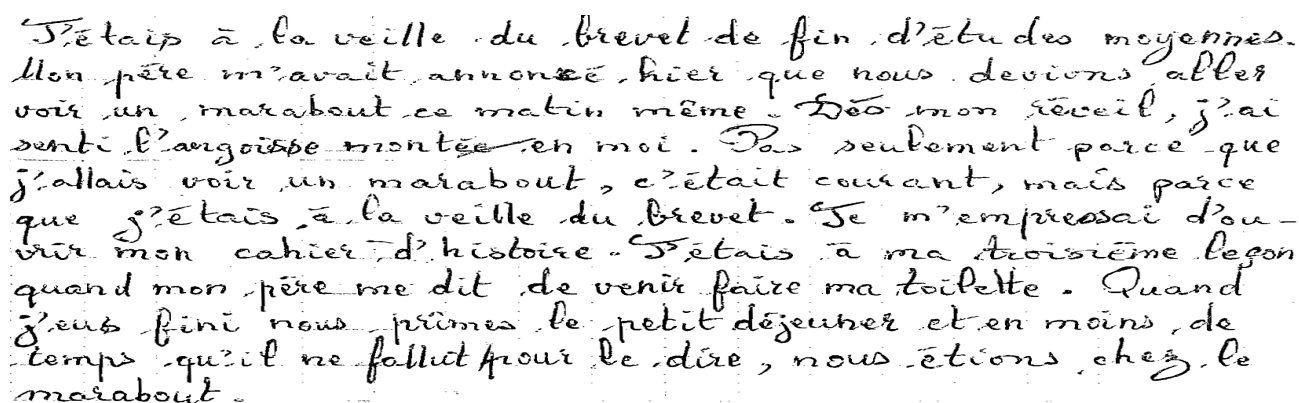 J'étais à la veille du brevet de fin d'études moyennes.
Mon père m'avait annoncé hier que nous devions aller
voir un marabout ce matin même. Dès mon réveil, j'ai
senti l'angoisse montée en moi. Pas seulement parce que
j'allais voir un marabout, c'était courant, mais parce
que j'étais à la veille du brevet. Je m'empressai d'ou-
vrir mon cahier d'histoire. J'étais à ma troisième leçon
quand mon père me dit de venir faire ma toilette. Quand
j'eus fini nous prîmes le petit déjeuner et en moins de
temps qu'il ne fallut pour le dire, nous étions chez le
marabout.